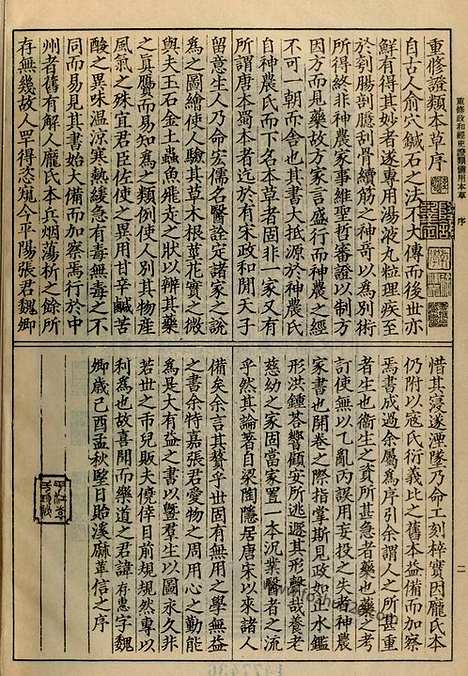 重修政和經史證類備用本草 序
重修證類本草序
自古人俞穴鍼石之法不大傳而後世亦
鮮有得其妙者遂專用湯液丸粒理疾至
於刳腸剖臆刮骨續筋之神奇以爲別術
所得終非神農家事維聖哲審證以制方
因方而見藥故方家言盛行而神農之經
不可一朝而舍也其書大抵源於神農
神農氏而下名本草者固非一家又有
所謂唐本蜀本者近有宋政和間天子
留意生人乃命宏儒名醫詮定諸家之說
爲之圖繪使人驗其草木根莖花實之微
與夫玉石金土蟲魚飛走之狀以辨其藥
之眞贋而易知爲之類例使人別其物產
風氣之殊宜君臣佐使之異用甘辛鹹苦
酸之異味溫涼寒熱緩急有毒無毒之不
同而易見其書始大備而加察焉行於中
州者舊有解人龐氏本兵煙蕩析之餘所
存無幾故人罕得恣窺今平陽張君魏卿
惜其寖遂湮墜乃命工刻梓實因龐氏本
仍附以寇氏衍義比之舊本益備而加察
焉書成過余屬爲序引余謂人之所甚重
者生也衛生之資所甚急者藥也藥之考
訂使無以乙亂丙誤用妄投之失者神農
家書也開卷之際指掌斯見政如止水鑑
形洪鍾荅響顧安所逃遁其形聲哉養老
慈幼之家固當家置一本況業醫者之流
乎然其論著自梁陶隱居唐宋以來諸人
備矣余言其贅乎世固有無用之學無益
之書余特嘉張君愛物之周用心之勤能
爲是大有益之書以曁羣生以圖永久非
若世之市兒販夫僥倖目前規規然專以
利爲也故喜聞而樂道之君諱存惠字魏
卿歲己酉孟秋望日貽溪麻革信之序
二